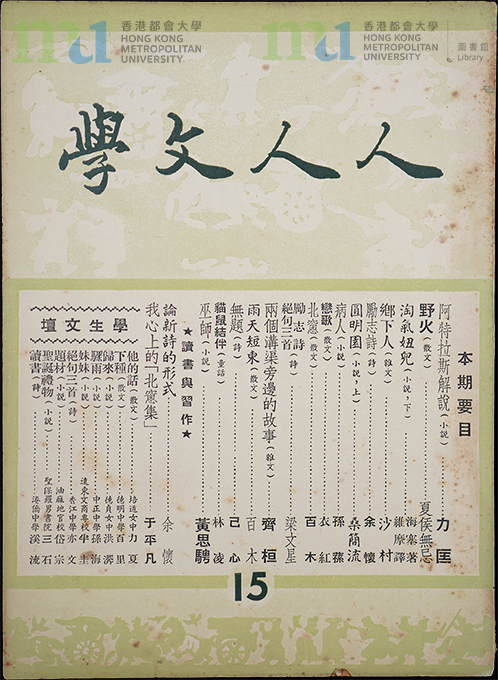 香港都會大學
HONG KONG
METROPOLITAN
UNIVERSITY
香港都會大學
HONG KONG
METROPOLITAN
UNIVERSITY
圖書館
Library
人人文學
本期要目
阿特拉斯解說(小說)⋯⋯力匡
野火(散文)⋯⋯夏侯無忌
淘氣妞兒(小說，下)⋯⋯海塞著 維摩譯
鄉下人(雜文)⋯⋯沙村
勵志詩(詩)⋯⋯余懷
圓明園(小說，上)⋯⋯桑簡流
病人(小說)⋯⋯孫蓀
戀歌(散文)⋯⋯衣紅
北窻(散文)⋯⋯百木
勵志詩(詩)
絕句三首⋯⋯梁文星
兩個溝渠旁邊的故事(雜文)⋯⋯齊桓
雨天短東(散文)⋯⋯百木
無題(詩)⋯⋯己心
貓鼠結伴(童話)⋯⋯林凌
巫師(小說)⋯⋯黃思騁
★讀書與習作★
論新詩的形式⋯⋯余懷
我心上的「北窻集」⋯⋯于平凡
學生文壇
他的話(散文)⋯⋯培道女中力夏
下種(散文)⋯⋯德明中學百里
歸來(小說)⋯⋯德貞女中洪濤
驟雨(小說)⋯⋯中正中學孫海
妹妹(小說)⋯⋯遠東文商專校伴圭
絕句三首(詩)⋯⋯香江中學亦文
題材(小說)⋯⋯油蔴地官校岱宗
聖誕禮物(小說)⋯⋯聖保羅男書院三石
讀書(詩)⋯⋯港僑中學溪流
15